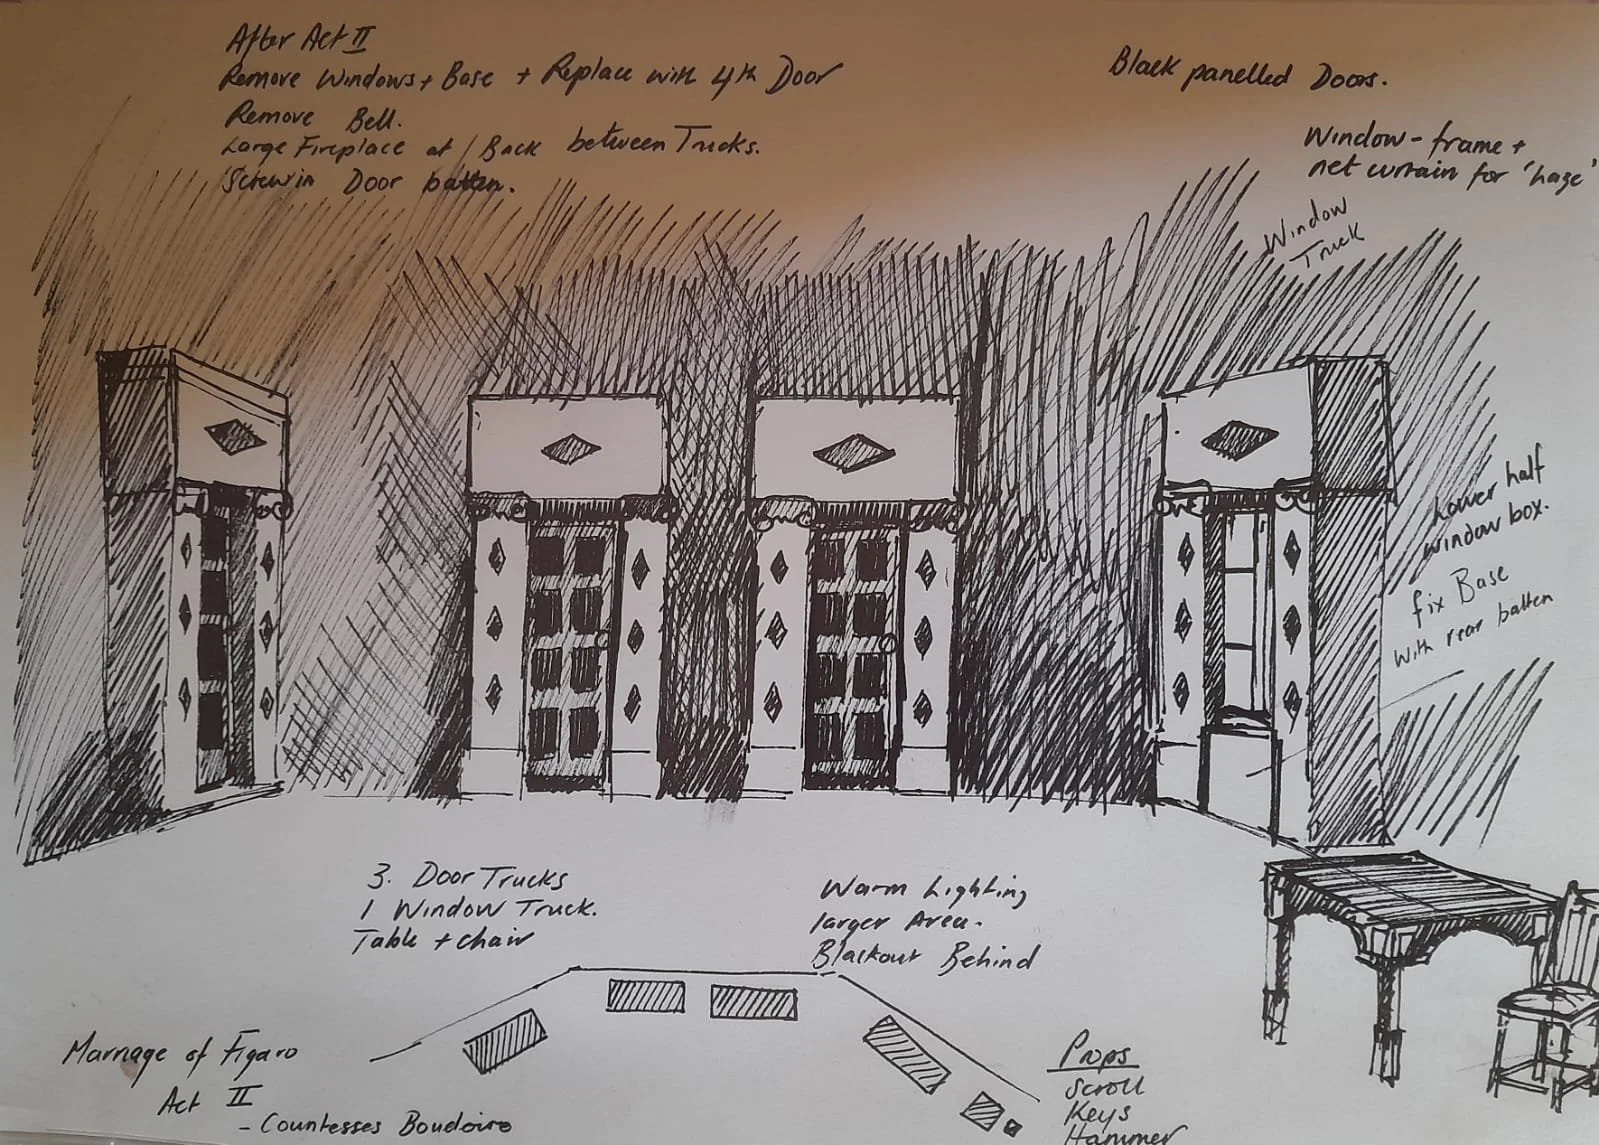 After Act II
Remove Windows + Base + Replace with 4th Door
Remove Bell.
Large Fireplace at Back between Trucks.
Screw in Door batten.
Black panelled Doors.
Window - frame +
net curtain for 'haze'
Window
Truck
Lower half
window box.
fix Base
with rear batten
3. Door Trucks
1 Window Truck.
Table + chair
Warm Lighting
larger Area.
Blackout Behind
Marriage of Figaro
Act II
- Countesses Boudoire
Props
Scroll
Keys
Hammer